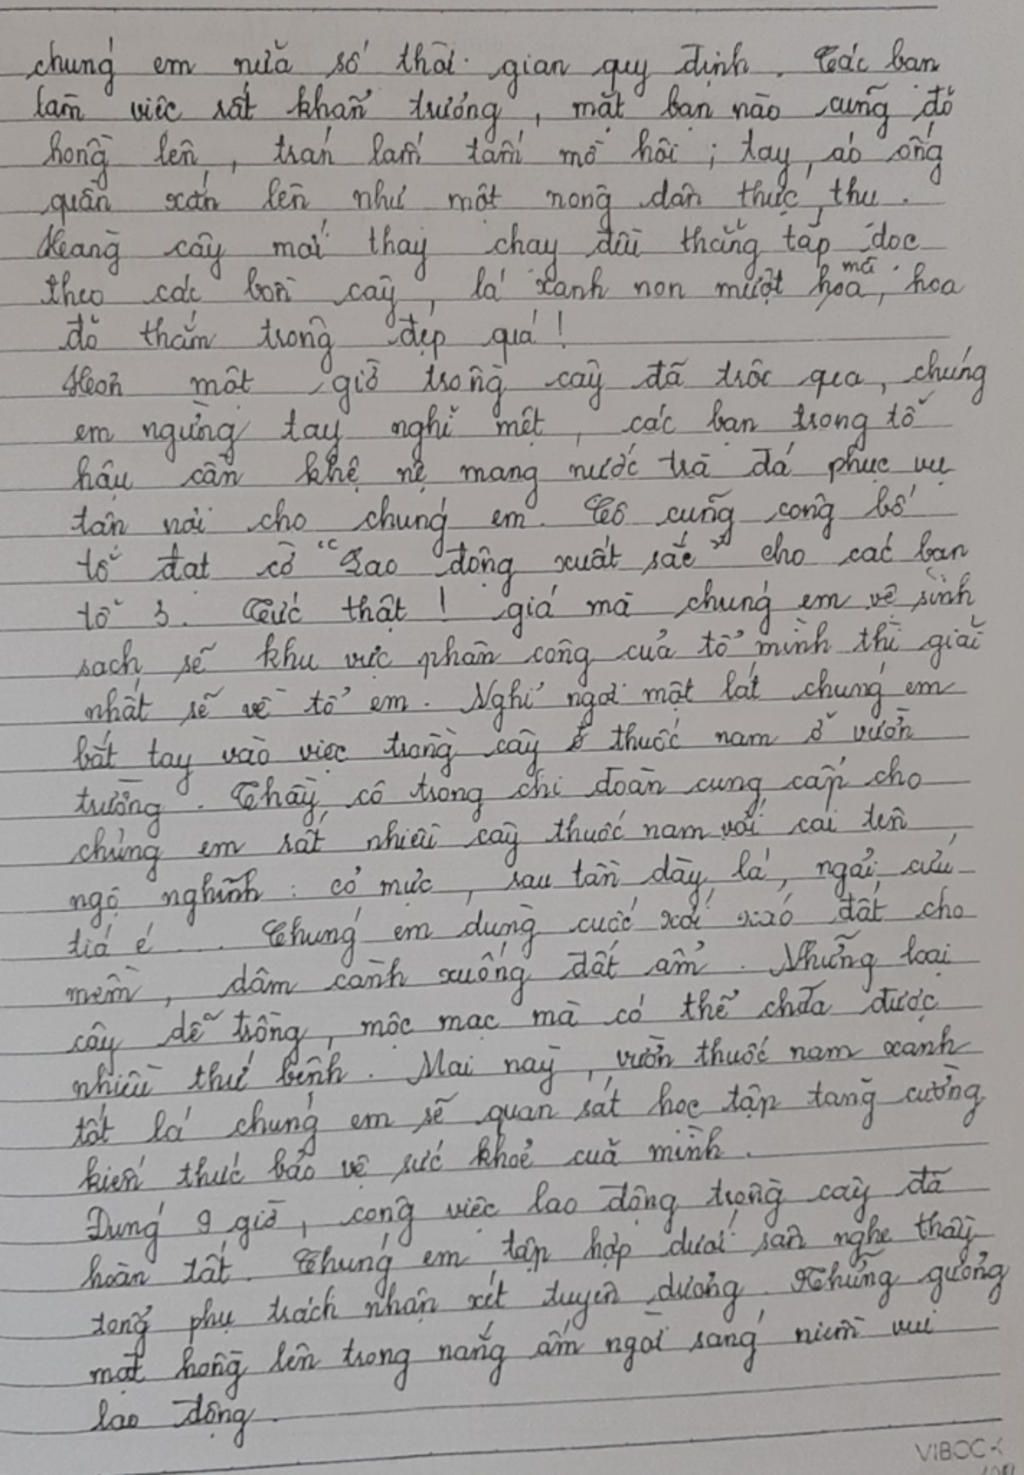 chúng em nửa số thời gian quy định. Các bạn
làm việc rất khẩn trương, mặt bạn nào cũng đỏ
hồng lên, trán lấm tấm mồ hôi; tay áo, ống
quần xắn lên như một nông dân thực thụ.
Hàng cây mới thay chạy dài thẳng tắp dọc
theo các bồn cây, lá xanh non mượt mà, hoa
đỏ thắm trông đẹp quá!
Hơn một giờ trồng cây đã trôi qua, chúng
em ngừng tay nghỉ mệt, các bạn trong tổ
hậu cần khệ nệ mang nước trà đá phục vụ
tận nơi cho chúng em. Cô cũng công bố
tổ đạt cờ "Lao động xuất sắc" cho các bạn
tổ 3. Tức thật! giá mà chúng em vệ sinh
sạch sẽ khu vực phân công của tổ mình thì giải
nhất sẽ về tổ em. Nghỉ ngơi một lát chúng em
bắt tay vào việc trồng cây thuốc nam ở vườn
trường. Thầy, cô trong chi đoàn cung cấp cho
chúng em rất nhiều cây thuốc nam với cái tên
ngộ nghĩnh: cỏ mực, rau tần dày lá, ngải cứu
tía é... Chúng em dùng cuốc xới xáo đất cho
mềm, dâm cành xuống đất ẩm. Những loại
cây dễ trồng, mộc mạc mà có thể chữa được
nhiều thứ bệnh. Mai này, vườn thuốc nam xanh
tốt lá chúng em sẽ quan sát học tập tăng cường
kiến thức bảo vệ sức khoẻ của mình.
Đúng 9 giờ, công việc lao động trồng cây đã
hoàn tất. Chúng em tập hợp dưới sân nghe thầy
tổng phụ trách nhận xét tuyên dương. Những gương
mặt hồng lên trong nắng ấm ngời sáng niềm vui
lao động.
VIBOOK